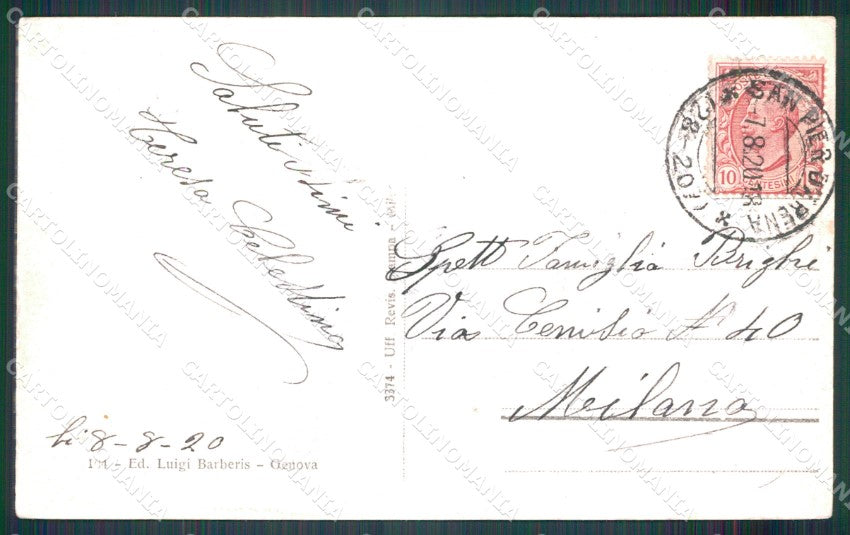 Saluti
Teresa Celestina
li 8-8-20
Ed. Luigi Barberis - Genova
3374 - Uff Revis. Stampa
10
CENTESIMI
SAN PIER D'ARENA
7.8.20.18
Spett Famiglia Brighi
Via Cenisio N 40
Milano
CARTOLINOMANIA